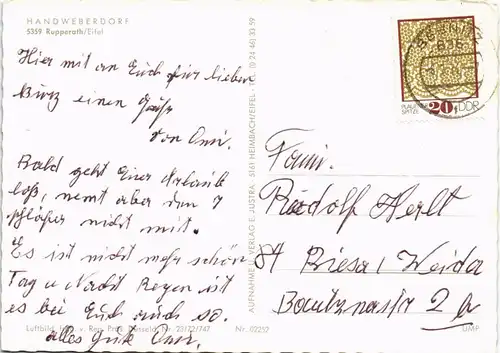 HANDWEBERDORF
5359 Rupperath/Eifel
Hier mit an Euch für lieben
Kurz einen Gruß
von Omi.
Bald geht Euer Urlaub
loß, nemt aber den 7
schläfer nicht mit.
Es ist nicht mehr schön
Tag u Nacht Regen ist
es bei Euch auch so.
alles gute Omi.
Luftbild, Nr. 23/72/747
Nr. 02252
AUFNAHME VERLAG E. JUSTRA · 5161 HEIMBACH/EIFEL · (0 24 46) 30 59
PLAUENER SPITZE
20
DDR
Fami.
Rudolf Herlt
84 Riesa/Weida
Bautznastr 2 a
LIMP